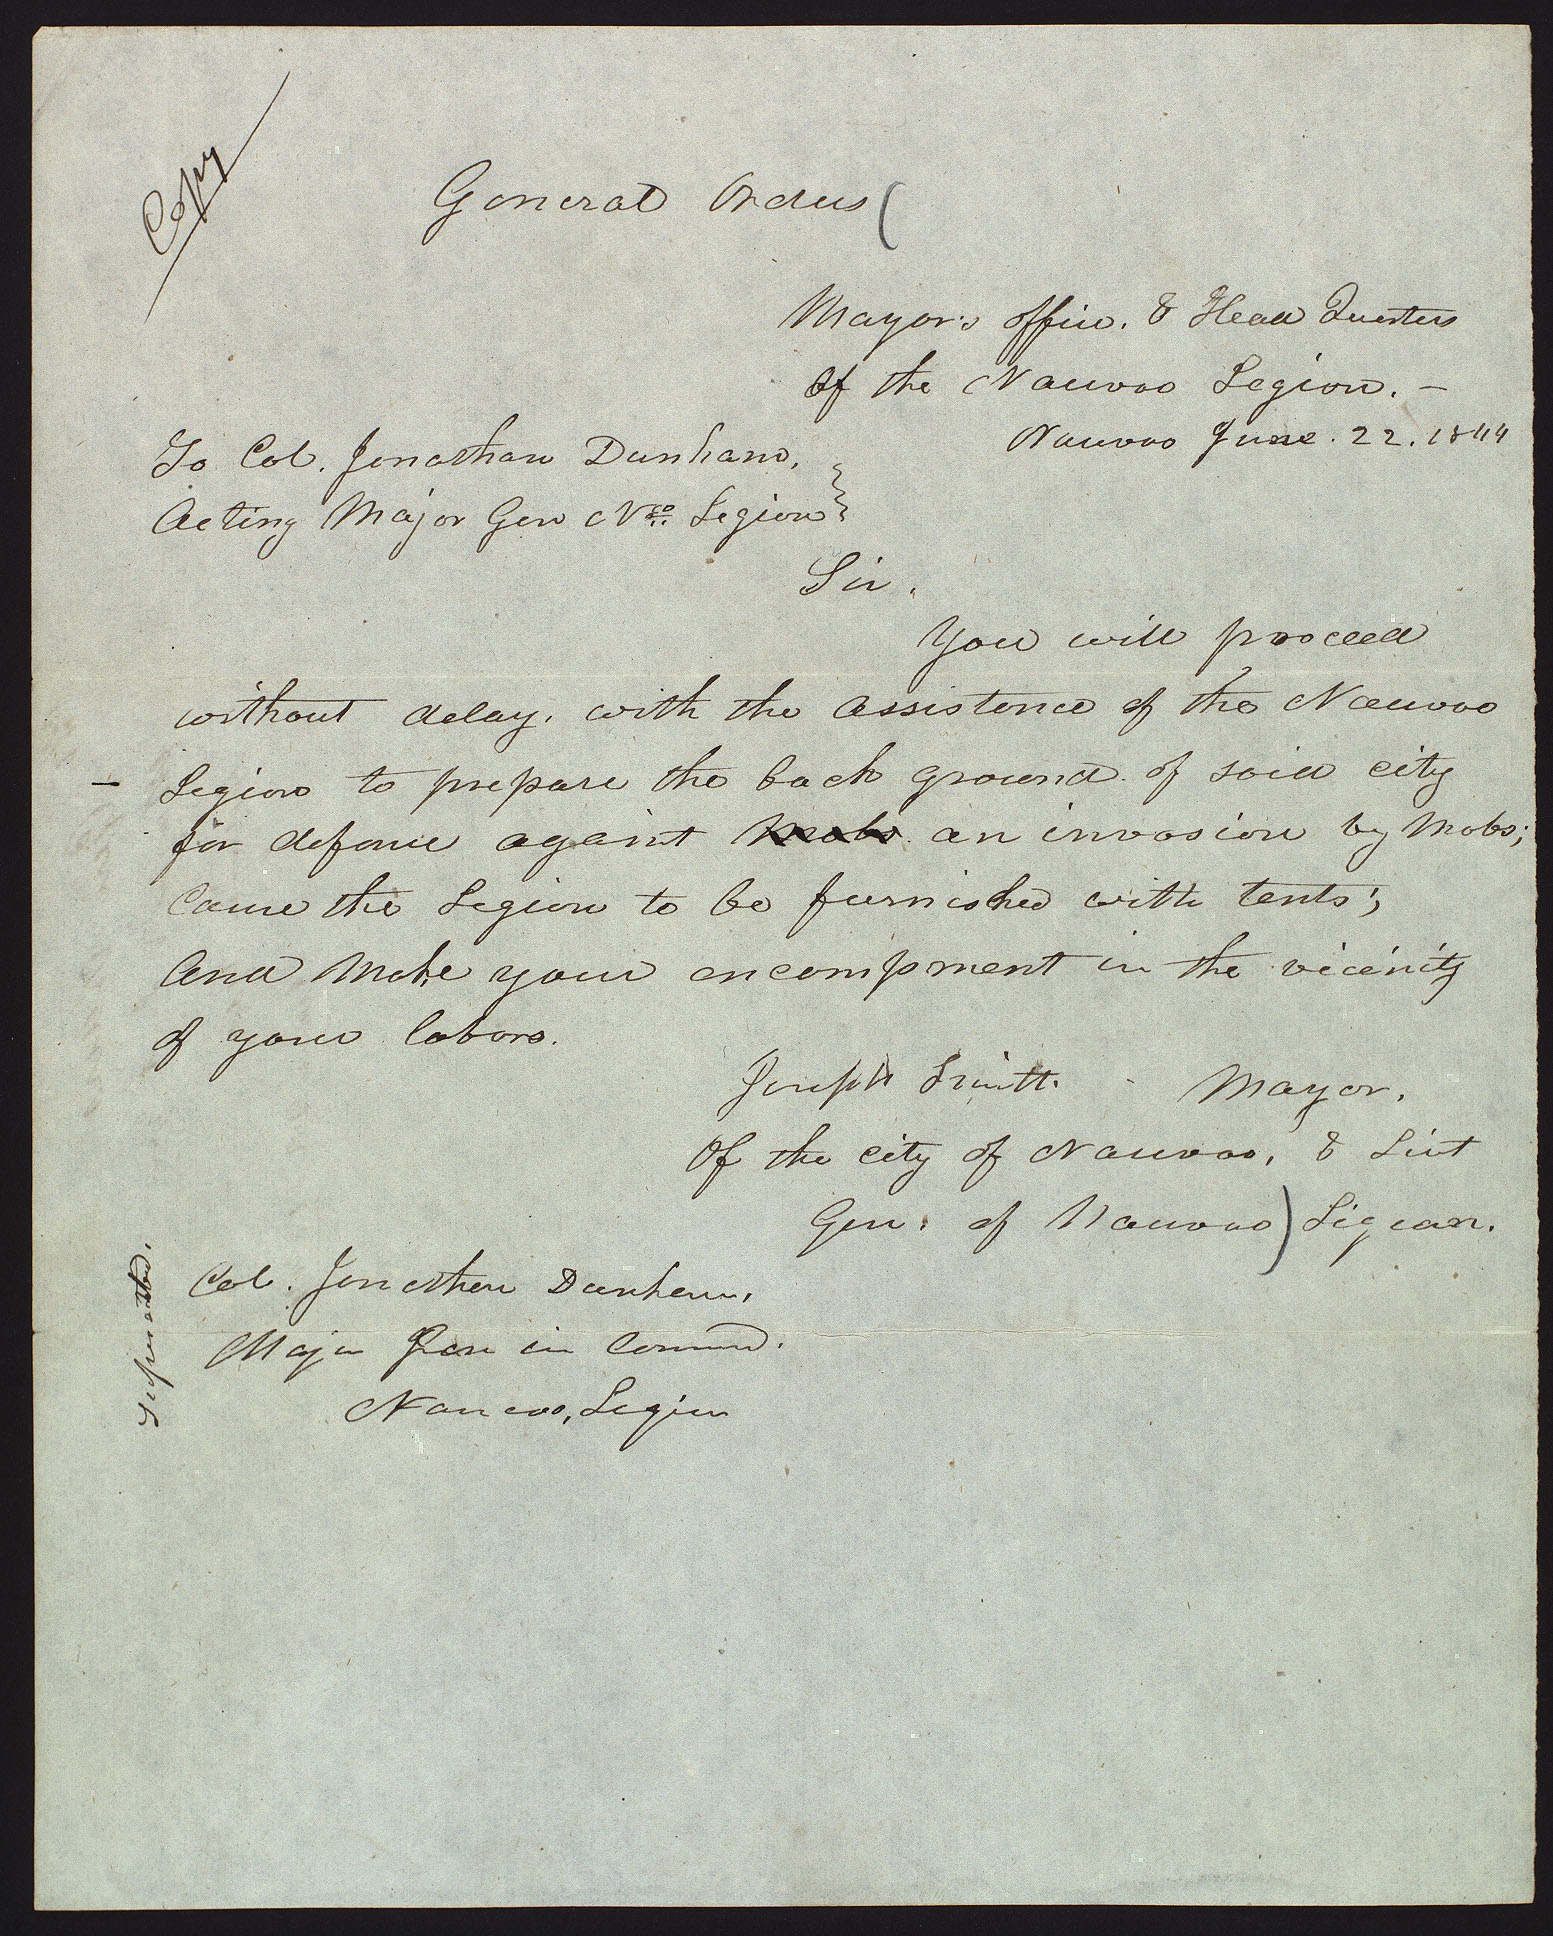 Copy
General Orders
Mayor's office. & Head Quarters
of the Nauvoo Legion. –
Nauvoo June. 22. 1844
To Col. Jonathan Dunham,
Acting Major Gen N.oo Legion
Sir.
You will proceed
without delay. with the assistence of the Nauvoo
– Legion to prepare the back ground of said city
for defence against Mobs an invasion by Mobs;
Cause the Legion to be furnished with tents;
And Make your encampment in the vicinity
of your labors.
Joseph Smith. Mayor.
Of the city of Nauvoo, & Liut
Gen. of Nauvoo) Legion.
Col. Jonathan Dunham,
Major Gen in Command.
Nauvoo, Legion